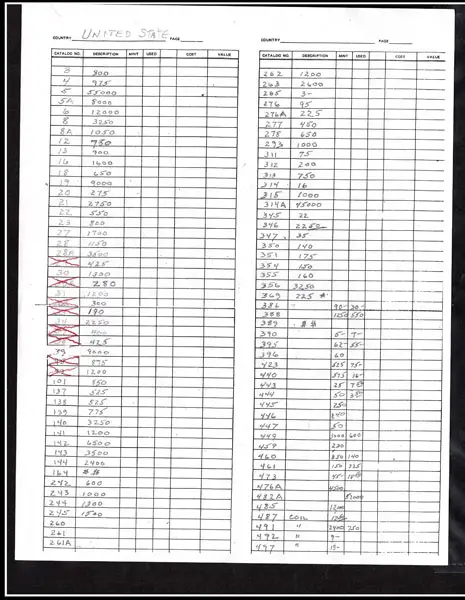 COUNTRY UNITED STATE PAGE
CATALOG NO. DESCRIPTION MINT USED COST VALUE
3 800
4 975
5 55000
5A 8000
6 12000
8 3250
8A 1050
12 750
13 900
16 1600
18 650
19 9000
20 275
21 2750
22 550
23 800
27 1700
28 1150
28A 3500
425
30 1300
280
31 1200
300
190
34 2250
400
425
39 9000
875
1200
101 850
137 525
138 525
139 775
140 3250
141 1200
142 6500
143 3500
144 2400
164 # #
242 600
243 1000
244 1300
245 1500
260
261
261A
COUNTRY PAGE
CATALOG NO. DESCRIPTION MINT USED COST VALUE
262 1200
263 2600
265 3-
276 95
276A 225
277 450
278 650
293 1000
311 75
312 200
313 750
314 16
315 1000
314A 45000
345 22
346
347 35
350 140
351 175
354 150
355 160
356 3250
369 225 *
386 90- 30-
388 1250 550
389 # #
390 5- 7-
395 62- 55-
396 60
423 525 75-
440 575
443 25
444 50
445 250
446 140
447 50
449 1000 600
459 230
460 850 140
461 150 225
473 45-
476A 4500
482A 51000
485 1200
487 COIL
491 " 2400 750
492 " 9-
497 " 19-